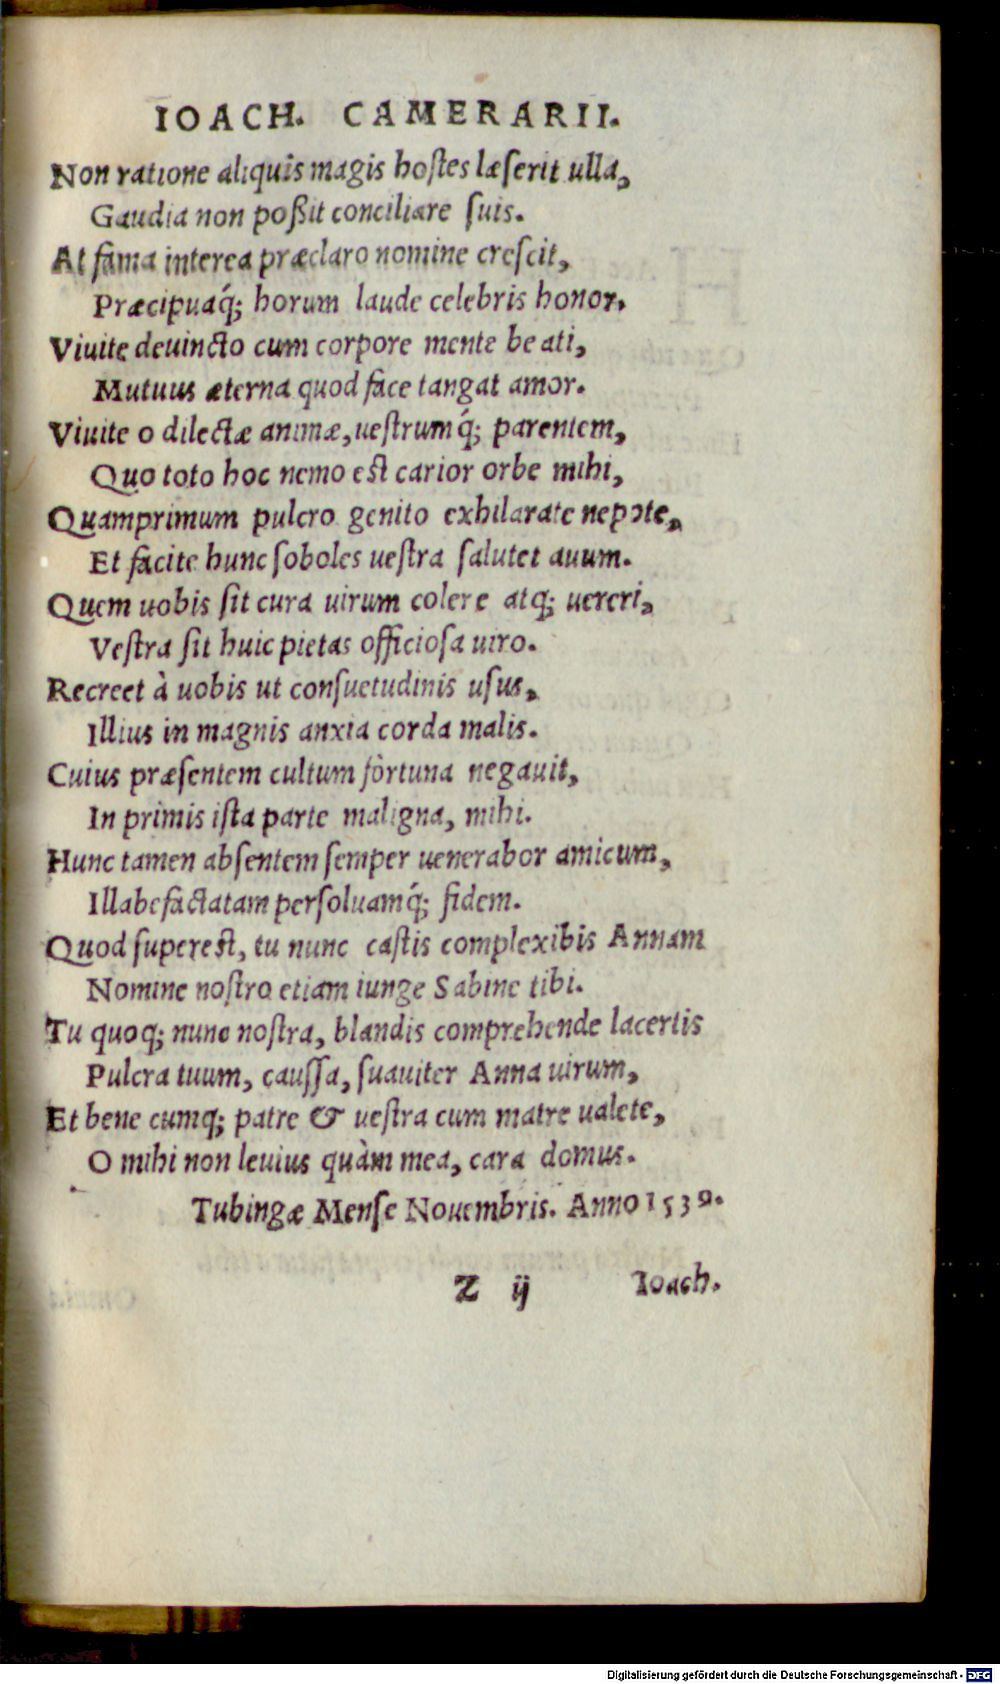 IOACH. CAMERARII.
Non ratione aliquis magis hostes læserit ulla,
Gaudia non poßit conciliare suis.
At fama interea præclaro nomine crescit,
Præcipuaq́; horum laude celebris honor.
Viuite deuincto cum corpore mente beati,
Mutuus æterna quod face tangat amor.
Viuite o dilectæ animæ, uestrumq́; parentem,
Quo toto hoc nemo est carior orbe mihi,
Quamprimum pulcro genito exhilarate nepote,
Et facite hunc soboles uestra salutet auum.
Quem uobis sit cura uirum colere atq; uereri,
Vestra sit huic pietas officiosa uiro.
Recreet à uobis ut consuetudinis usus,
Illius in magnis anxia corda malis.
Cuius præsentem cultum fortuna negauit,
In primis ista parte maligna, mihi.
Hunc tamen absentem semper uenerabor amicum,
Illabefactatam persoluamq́; fidem.
Quod superest, tu nunc castis complexibis Annam
Nomine nostro etiam iunge Sabine tibi.
Tu quoq; nunc nostra, blandis comprehende lacertis
Pulcra tuum, caussa, suauiter Anna uirum,
Et bene cumq; patre & uestra cum matre ualete,
O mihi non leuius quàm mea, cara domus.
Tubingæ Mense Nouembris. Anno 1539.
Z ij Ioach.
Digitalisierung gefördert durch die Deutsche Forschungsgemeinschaft - DFG